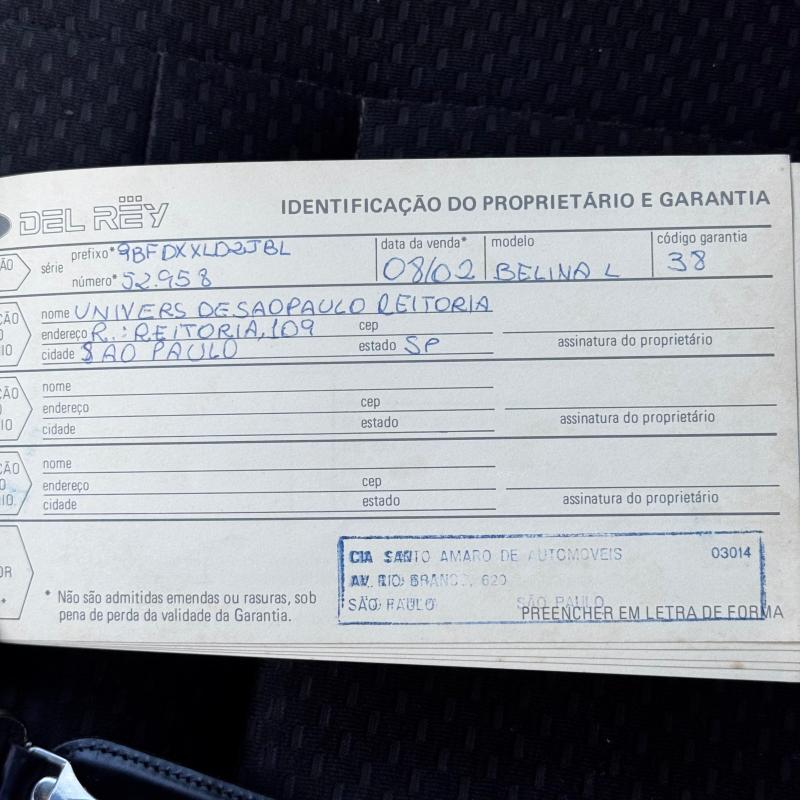 DEL REY IDENTIFICAÇÃO DO PROPRIETÁRIO E GARANTIA
ÃO série prefixo* 9BFDXXLD2JBL data da venda* 08/02 modelo BELINA L código garantia 38
número* 52.958
ÇÃO nome UNIVERS DESAOPAULO REITORIA
O endereço R.: REITORIA, 109 cep
IO cidade SAO PAULO estado SP assinatura do proprietário
ÇÃO nome
O endereço cep
IO cidade estado assinatura do proprietário
ÇÃO nome
O endereço cep
IO. cidade estado assinatura do proprietário
OR
*
CIA SANTO AMARO DE AUTOMOVEIS 03014
AV. RIO BRANCO, 620
SÃO PAULO SÃO PAULO
* Não são admitidas emendas ou rasuras, sob
pena de perda da validade da Garantia.
PREENCHER EM LETRA DE FORMA